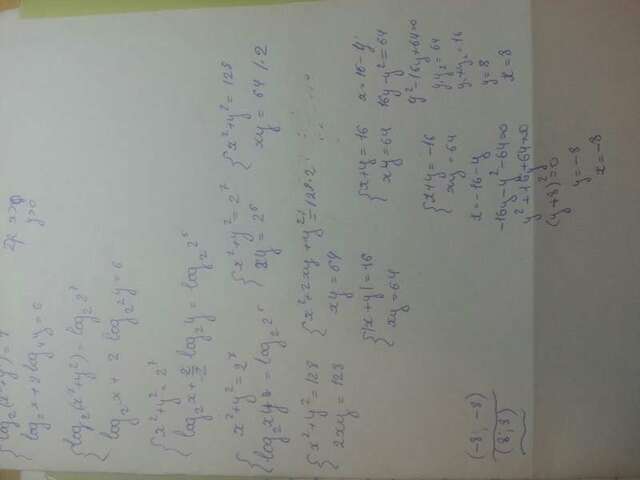 {log₂(x²+y²)=7
log₂x+2log₄y=6
x>0
y>0
{log₂(x²+y²)=log₂2⁷
log₂x + 2 log₂²y=6
{x²+y²=2⁷
log₂x+2/2 log₂y=log₂2⁶
{x²+y²=2⁷
log₂xy=log₂2⁶
{x²+y²=2⁷
xy=2⁶
{x²+y²=128
xy=64 |·2
{x²+y²=128
2xy=128
{x²+2xy+y²=128·2
xy=64
{|x+y|=16
xy=64
{x+y=16
xy=64
x=16-y
16y-y²=64
y²-16y+64=0
y₁y₂=64
y₁+y₂=16
y=8
x=8
{x+y=-16
xy=64
x=-16-y
-16y-y²-64=0
y²+16y+64=0
(y+8)²=0
y=-8
x=-8
(-8;-8)
(8;8)